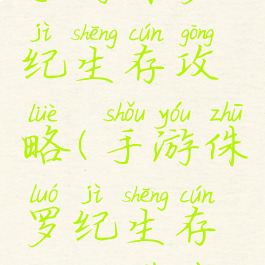 jì shēng cún gōng
纪生存攻
lüè shǒu yóu zhū
略(手游侏
luó jì shēng cún
罗纪生存